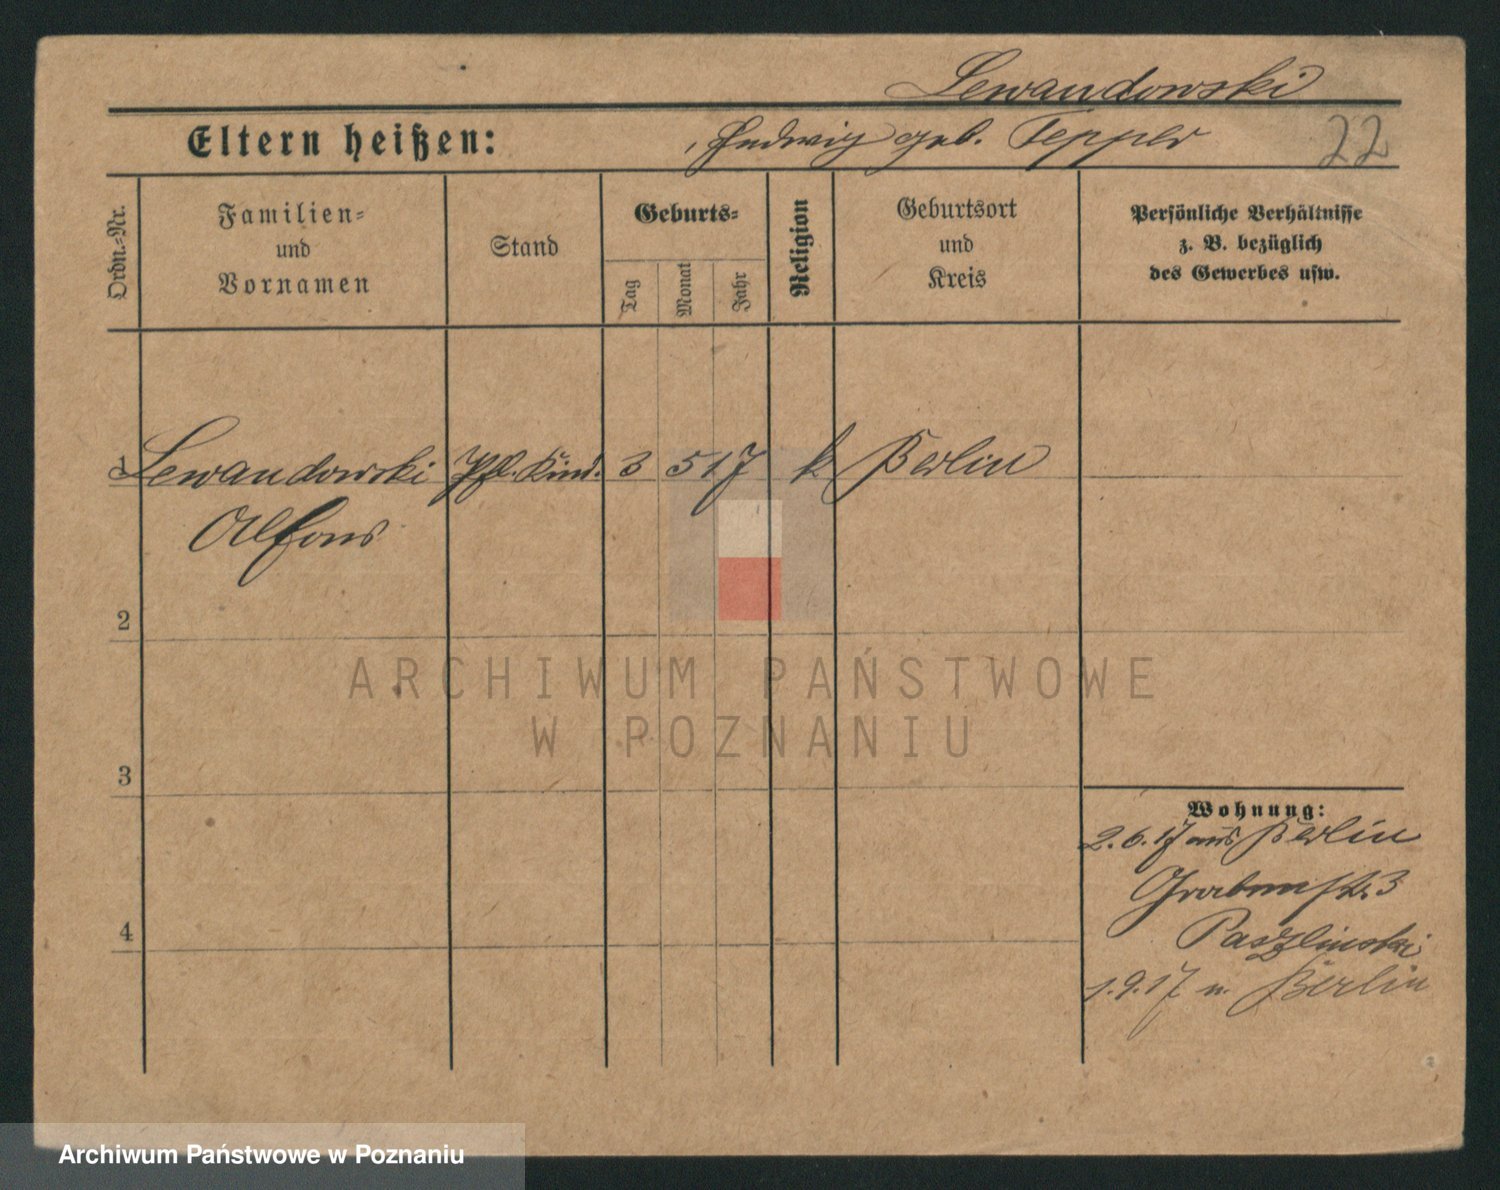 Lewandowski
Eltern heißen: Hedwig geb. Tepper 22
Ordn.-Nr.
Familien-
und
Vornamen
Stand
Geburts-
Tag
Monat
Jahr
Religion
Geburtsort
und
Kreis
Persönliche Verhältnisse
z. B. bezüglich
des Gewerbes usw.
1 Lewandowski Pfl. Kind. 3 5 17 k Berlin
Alfons
2
3
4
ARCHIWUM PAŃSTWOWE
W POZNANIU
Wohnung:
2.6.17 aus Berlin
Grabenstr. 3
Paszlinski
1.9.17 n. Berlin
Archiwum Państwowe w Poznaniu